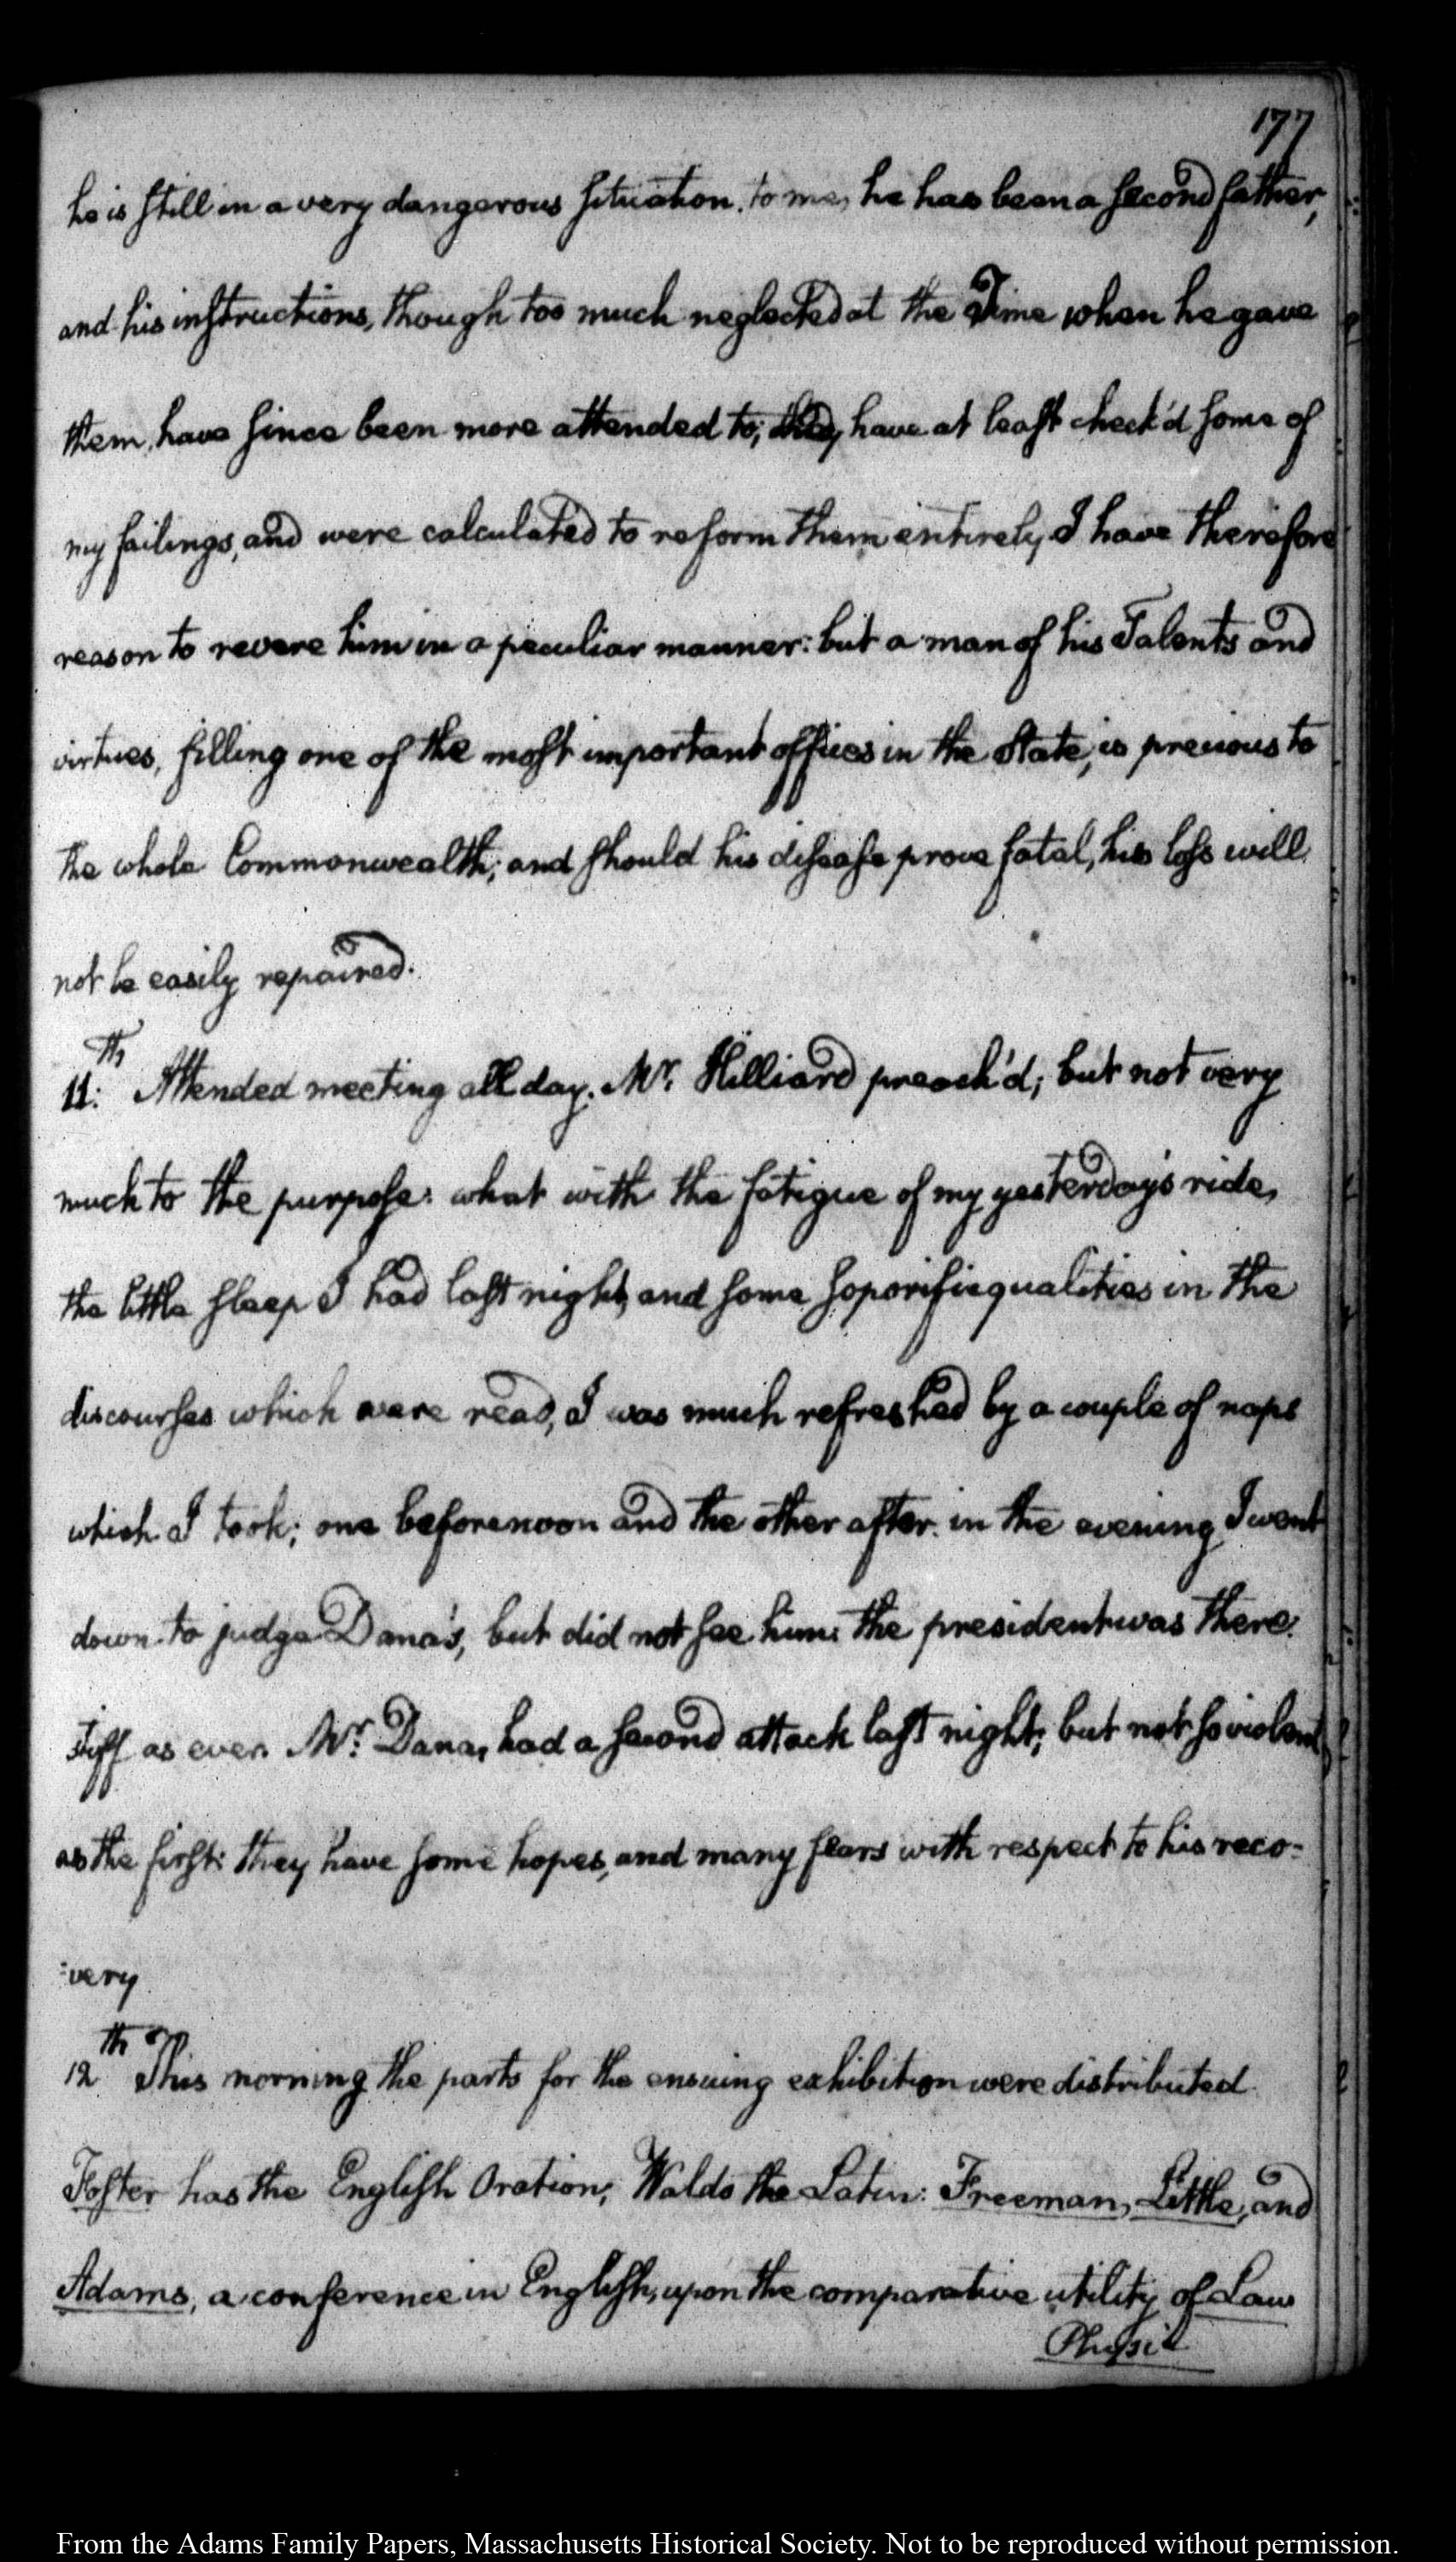 177
he is still in a very dangerous situation. to me, he has been a second father,
and his instructions, though too much neglected at the Time when he gave
them, have since been more attended to; they have at least check'd some of
my failings, and were calculated to reform them entirely. I have therefore
reason to revere him in a peculiar manner: but a man of his Talents and
virtues, filling one of the most important offices in the State, is precious to
the whole Commonwealth; and should his disease prove fatal, his loss will
not be easily repaired.
11:th Attended meeting all day. Mr. Hilliard preach'd; but not very
much to the purpose: what with the fatigue of my yesterday's ride,
the little sleep I had last night, and some soporific qualities in the
discourses which were read, I was much refreshed by a couple of naps
which I took; one beforenoon and the other after. in the evening I went
down to judge Dana's, but did not see him: the president was there.
stiff as ever. Mr. Dana, had a second attack last night; but not so violent
as the first: they have some hopes, and many fears with respect to his reco-
-very.
12th This morning the parts for the ensuing exhibition were distributed.
Foster has the English Oration; Waldo the Latin: Freeman, Little, and
Adams, a conference in English, upon the comparative utility of Law
Physic
From the Adams Family Papers, Massachusetts Historical Society. Not to be reproduced without permission.